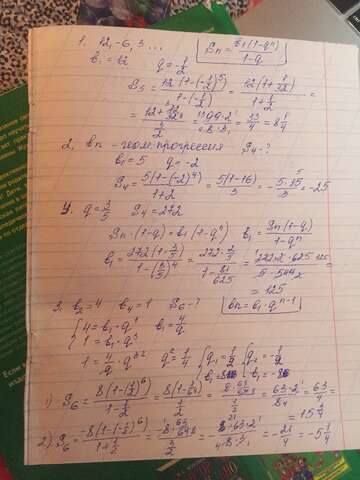 1. 12, -6, 3 ...
b₁ = 12 q = -1/2 Sn = b₁(1-qⁿ)/1-q
S₅ = 12(1-(-1/2)⁵)/1-(-1/2) = 12(1+1/32)/1+1/2 =
= 12+12/32 / 3/2 = 99·2/8·3 = 33/4 = 8 1/4
2. bn - геом. прогрессия S₄ - ?
b₁ = 5 q = -2
S₄ = 5(1-(-2)⁴)/1+2 = 5(1-16)/3 = -5·15/3 = -25
4. q = 3/5 S₄ = 272
Sn·(1-q) = b₁(1-qⁿ) b₁ = Sn(1-q)/1-qⁿ
b₁ = 272(1-3/5)/1-(3/5)⁴ = 272·2/5 / 1-81/625 = 272·2·625/5·544
= 125
3. b₂ = 4 b₄ = 1 S₆ - ? bn = b₁·qⁿ⁻¹
{4 = b₁·q¹ b₁ = 4/q
1 = b₁·q³
1 = 4/q·q³ q² = 1/4 {q₁ = 1/2 b₁ = 8 {q₂ = -1/2 b₁ = -8
1) S₆ = 8(1-(1/2)⁶)/1-1/2 = 8(1-1/64)/1/2 = 8·63/64 / 1/2 = 63·2/8 = 63/4 =
= 15 3/4
2) S₆ = -8(1-(-1/2)⁶)/1+1/2 = -8·63/64 / 3/2 = -8·63·2/64·3 = -21/4 = -5 1/4